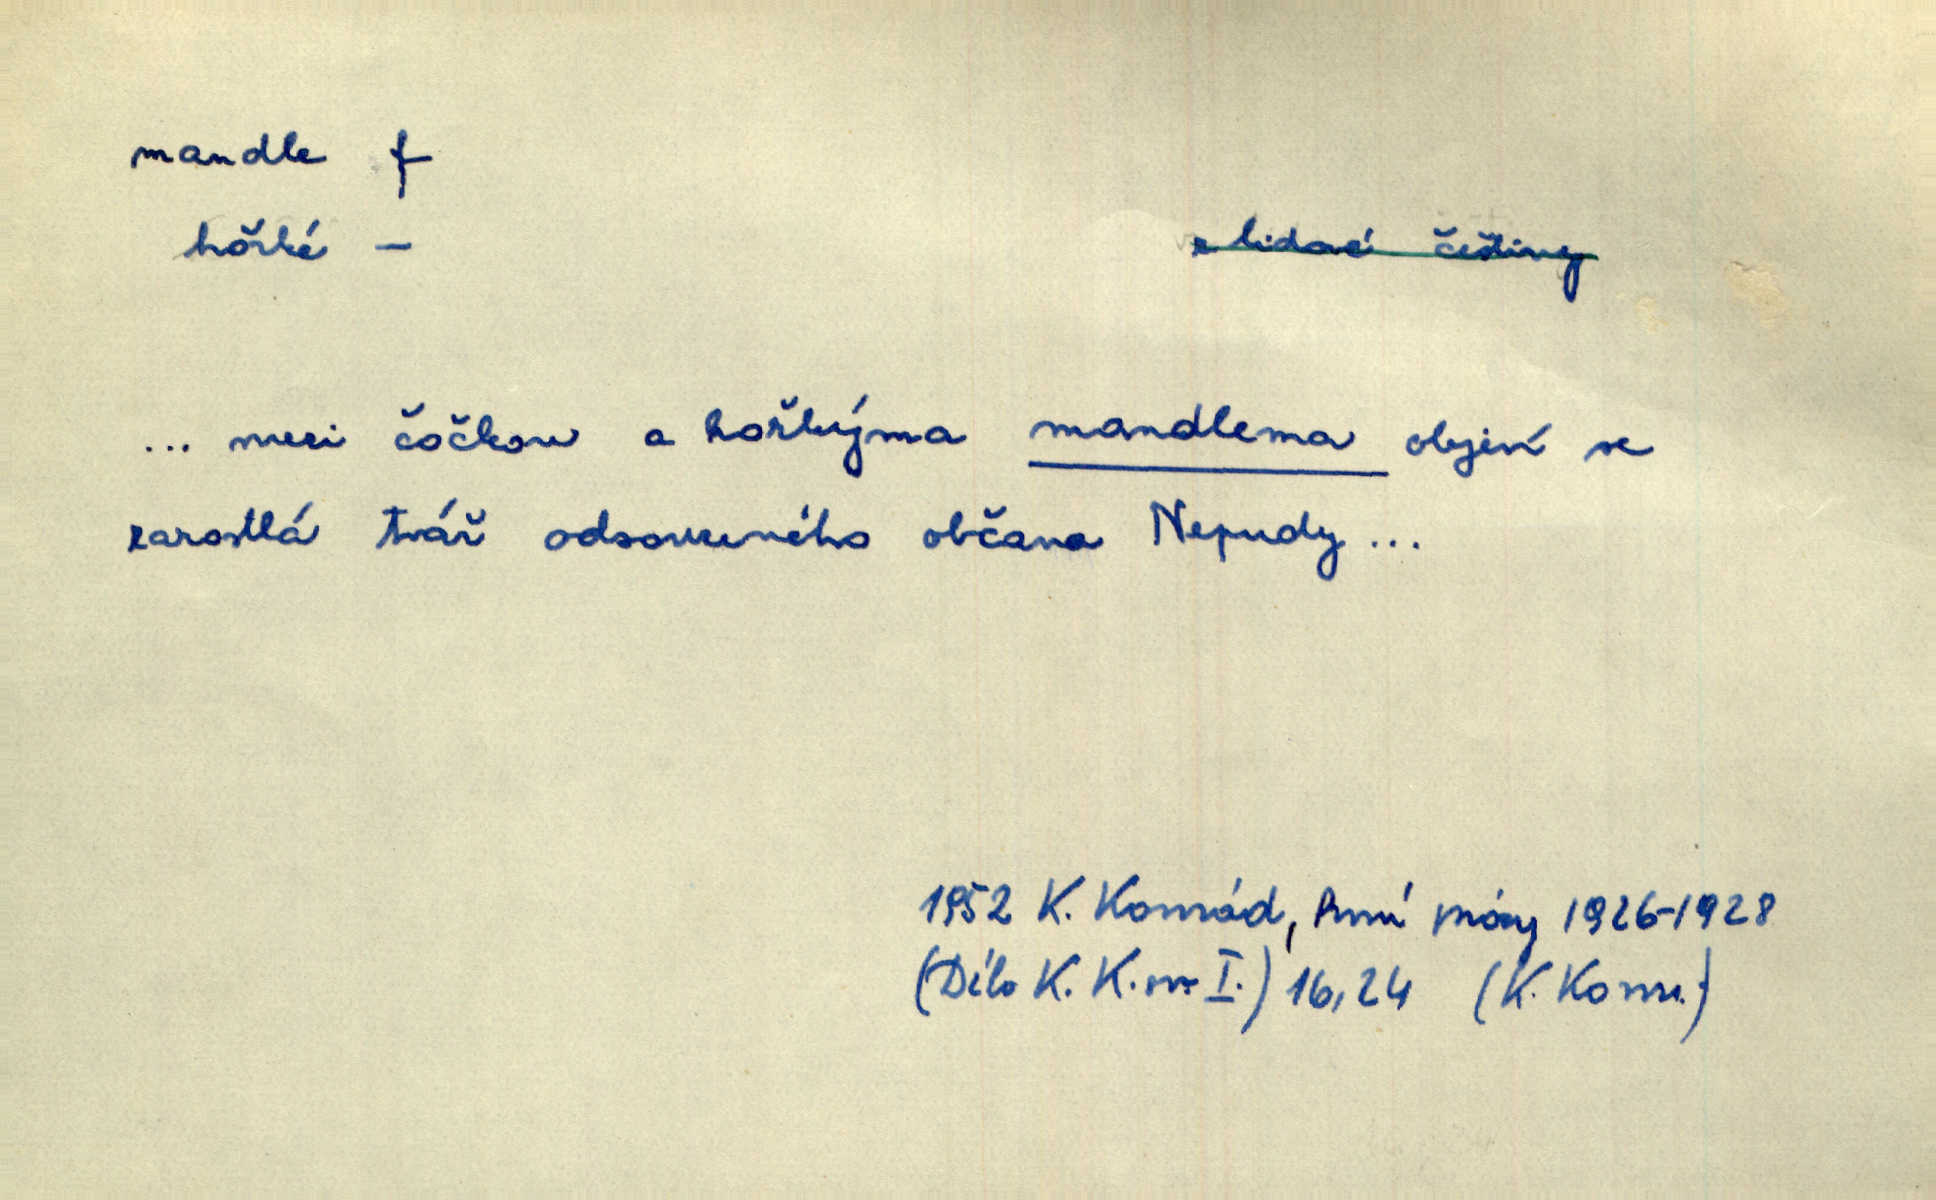 mandle f
hořké –
z lidové češtiny
... mezi čočkou a hořkýma mandlema objeví se
zarostlá tvář odsouzeného občana Nepudy ...
1952 K. Konrád, První máj 1926-1928
(Dílo K. K. sv. I.) 16, 24 (K. Konr.)